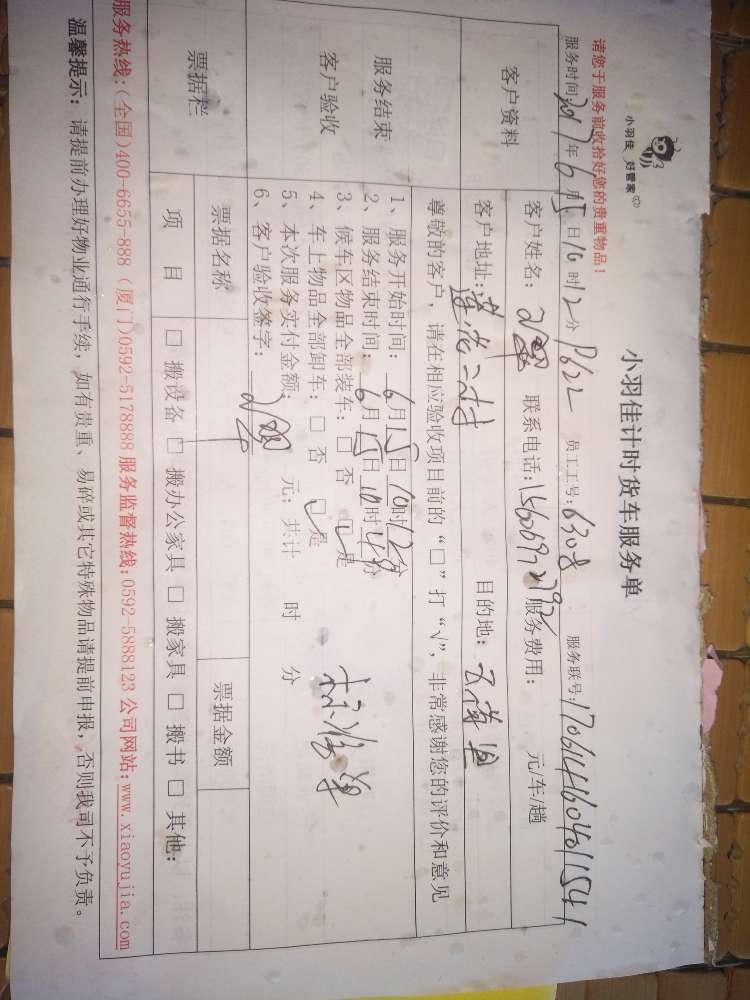 小羽佳 好管家
小羽佳计时货车服务单
请您于服务前收拾好您的贵重物品！
服务时间：2017年6月15日10时12分 P622 员工工号：6308 服务联号：170614160401154
客户资料
客户姓名： 联系电话： 服务费用： 元/车/趟
客户地址：莲岩二村 目的地：
服务结束
客户验收
尊敬的客户，请在相应验收项目前的“□”打“√”，非常感谢您的评价和意见
1、服务开始时间：6月15日10时12分
2、服务结束时间：6月15日10时48分
3、候车区物品全部装车：□否 ☑是
4、车上物品全部卸车：□否 ☑是
5、本次服务实付金额： 元；共计 时 分
6、客户验收签字：
票据栏
票据名称 票据金额
项 目 □ 搬设备 □ 搬办公家具 □ 搬家具 □ 搬书 □ 其他：
服务热线：（全国）400-6655-888（厦门）0592-5178888 服务监督热线：0592-5888123 公司网站：www.xiaoyujia.com
温馨提示：请提前办理好物业通行手续，如有贵重、易碎或其它特殊物品请提前申报，否则我司不予负责。